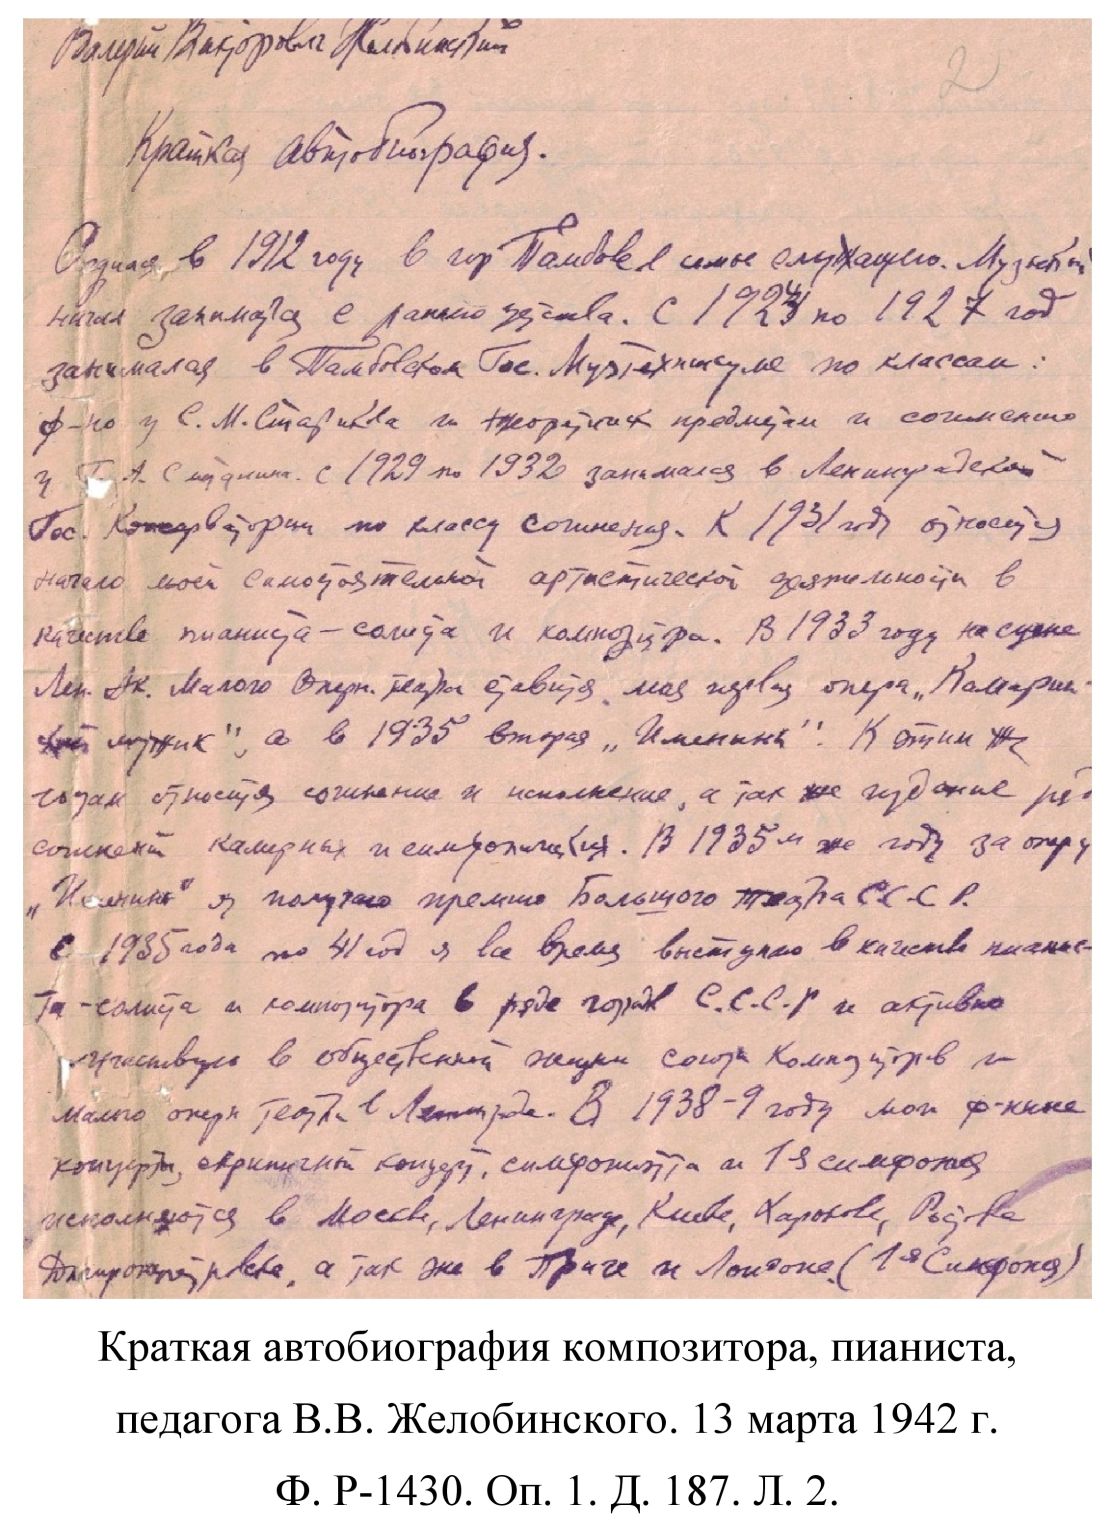 Валерий Викторович Желобинский
2
Краткая автобиография.
Родился в 1912 году в гор Тамбове в семье служащего. Музыкой
начал заниматся с раннего детства. С 1924 по 1927 год
занимался в Тамбовском Гос. Музтехникуме по классам:
ф-но у С. М. Старикова и теоретич предметам и сочинению
у А. с 1929 по 1932 занимался в Ленинградской
Гос. Консерватории по классу сочинения. К 1931 году относится
начало моей самостоятельной артистической деятельности в
качестве пианиста-солиста и композитора. В 1933 году на сцене
Лен. Ак. Малого Оперн. театра ставится моя первая опера „Камарин-
ский мужик", а в 1935 вторая „Именины". К этим же
годам относится сочинение и исполнение, а так же издание ряд
сочинений камерных и симфонических. В 1935м же году за оперу
„Именины" я получаю премию Большого театра С.С.С.Р.
С 1935 года по 41 год я все время выступаю в качестве пианис-
та-солиста и композитора в ряде городов С.С.С.Р и активно
участвую в общественной жизни союза Композиторов и
малого оперн театра в Ленинграде. В 1938-9 году мои ф-ные
концерты, скрипичный концерт, симфониэтта и 1я симфония
исполняются в Москве, Ленинграде, Киеве, Харькове, Ростове
Днепропетровске, а так же в Праге и Лондоне. (1я Симфония)
Краткая автобиография композитора, пианиста,
педагога В.В. Желобинского. 13 марта 1942 г.
Ф. Р-1430. Оп. 1. Д. 187. Л. 2.